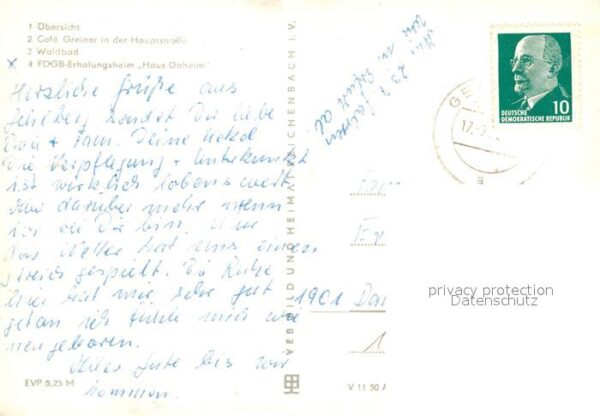 1 Übersicht
2 Café Greiner in der Hauptstraße
3 Waldbad
x 4 FDGB-Erholungsheim „Haus Daheim"
Herzliche Grüße aus
sendet Dir liebe
+ Fam. Deine
Die Verpflegung + Unterkunft
ist wirklich lobenswert
darüber mehr wenn
ich bei Dir bin.
das Wetter hat uns einen
Streich gespielt. Die Ruhe
hier hat mir sehr gut
getan ich fühle mich wie
neugeboren.
Alles Gute bis wir
kommen.
EVP 0,25 M
VEB BILD UND HEIMAT REICHENBACH I. V.
23
wir in Erfurt ab
DEUTSCHE
DEMOKRATISCHE REPUBLIK
10
GE
17.
a
1901
privacy protection
Datenschutz
V 11 50 A